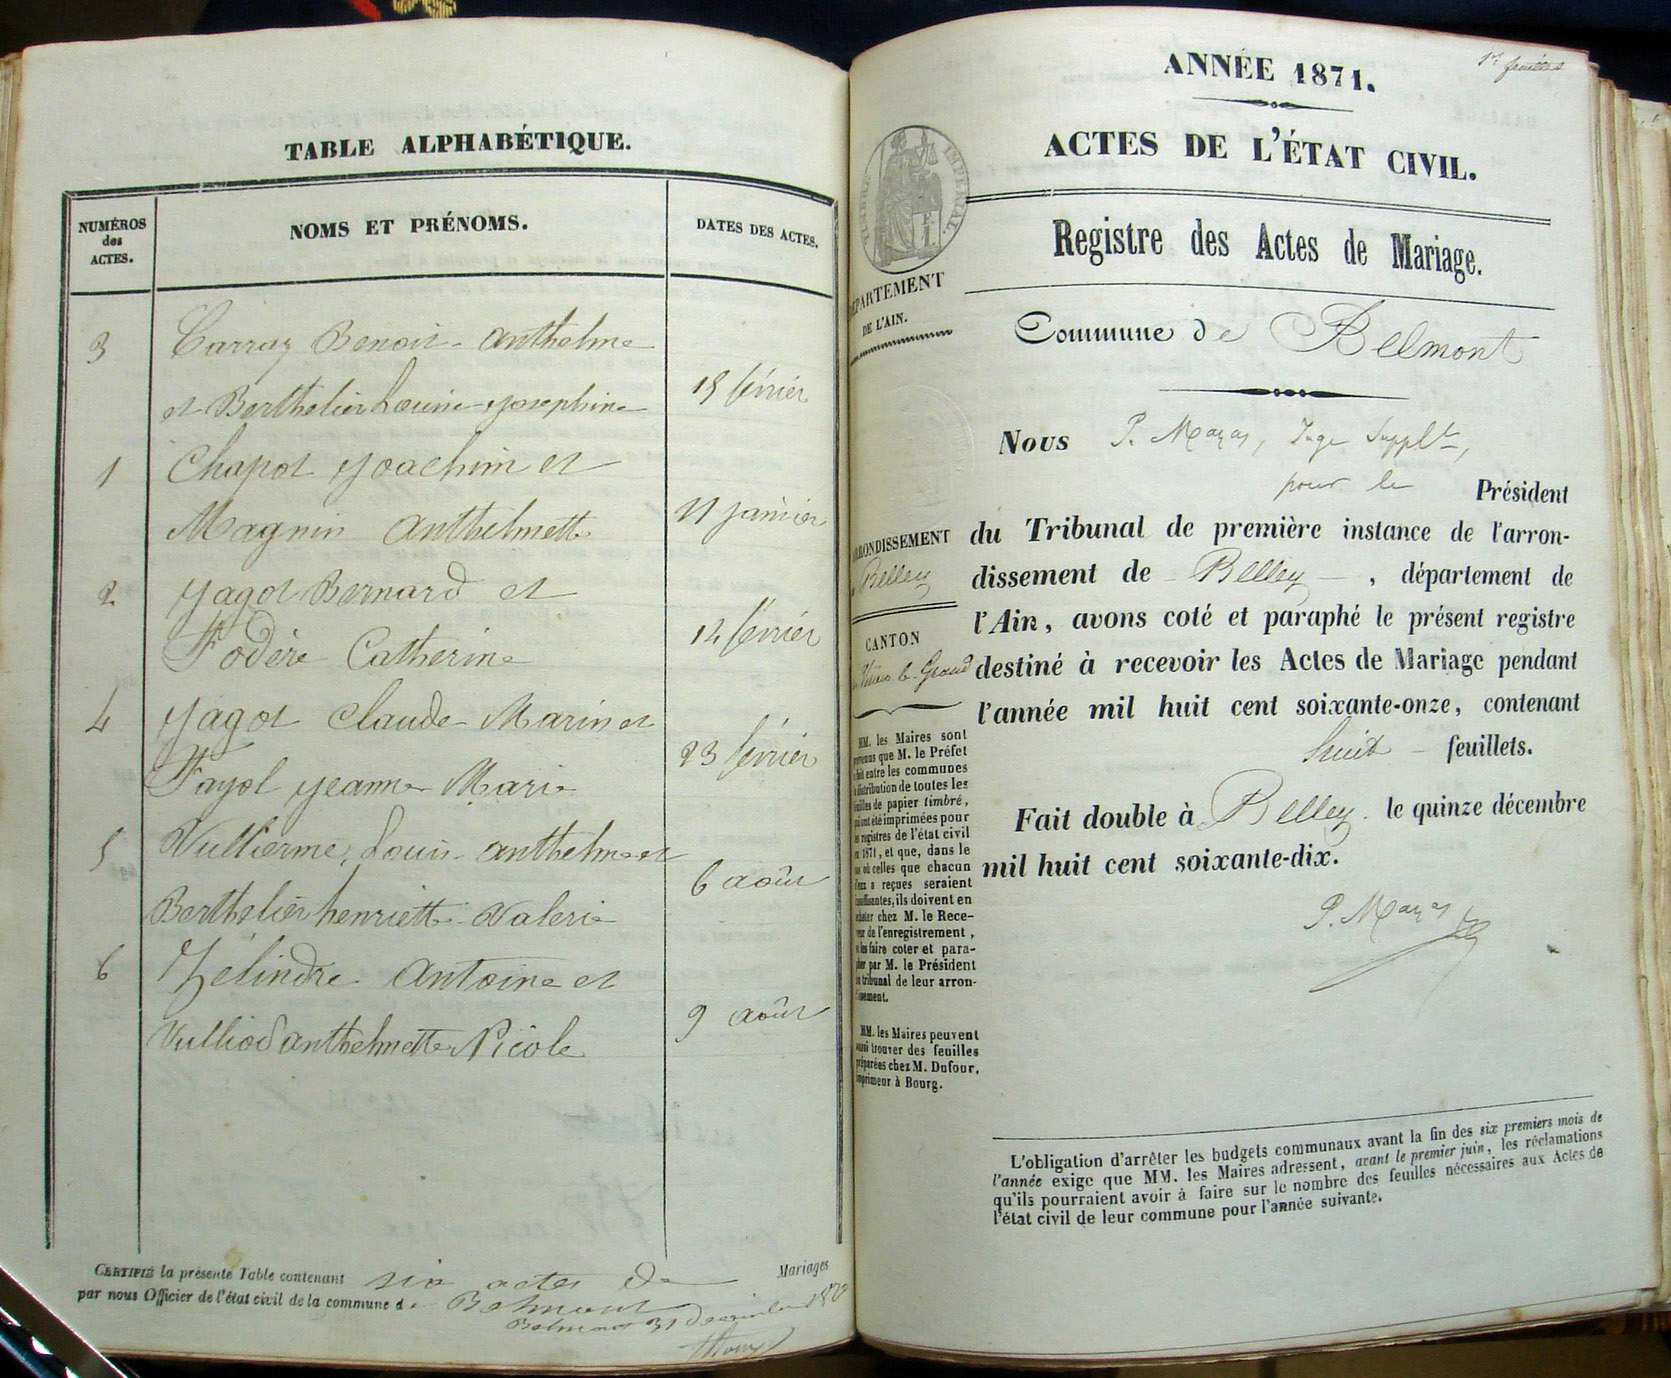 TABLE ALPHABÉTIQUE.
NUMÉROS
des
ACTES.
NOMS ET PRÉNOMS.
DATES DES ACTES.
3 Carraz Benoit Anthelme
et Berthelier Louise Josephine 15 février
1 Chapot Joachim et
Magnin Anthelmette 11 janvier
2 Jagot Bernard et
Fodère Catherine 14 février
4 Jagot Claude Marin et
Fayol Jeanne Marie 23 février
5 Vullierme Louis Anthelme et
Berthelier henriette Valerie 6 août
6 Zelindre Antoine et
Vulliod anthelmette Nicole 9 août
CERTIFIÉ la présente Table contenant six actes de Mariages
par nous Officier de l'état civil de la commune de Belmont
Belmont 31 décembre
1er feuillet
ANNÉE 1871.
ACTES DE L'ÉTAT CIVIL.
TIMBRE IMPÉRIAL
Registre des Actes de Mariage.
DÉPARTEMENT
DE L'AIN.
Commune de Belmont
Nous P. Mazas, Juge Supplt,
pour le Président
du Tribunal de première instance de l'arron-
dissement de Belley, département de
l'Ain, avons coté et paraphé le présent registre
destiné à recevoir les Actes de Mariage pendant
l'année mil huit cent soixante-onze, contenant
huit feuillets.
Fait double à Belley le quinze décembre
mil huit cent soixante-dix.
P. Mazas
ARRONDISSEMENT
Belley
CANTON
Virieu le Grand
MM. les Maires sont
prévenus que M. le Préfet
fait entre les communes
la distribution de toutes les
feuilles de papier timbré,
qui ont été imprimées pour
les registres de l'état civil
en 1871, et que, dans le
cas où celles que chacun
d'eux a reçues seraient
insuffisantes, ils doivent en
acheter chez M. le Rece-
veur de l'enregistrement,
et les faire coter et para-
pher par M. le Président
du tribunal de leur arron-
dissement.
MM. les Maires peuvent
aussi trouver des feuilles
préparées chez M. Dufour,
imprimeur à Bourg.
L'obligation d'arrêter les budgets communaux avant la fin des six premiers mois de
l'année exige que MM. les Maires adressent, avant le premier juin, les réclamations
qu'ils pourraient avoir à faire sur le nombre des feuilles nécessaires aux Actes de
l'état civil de leur commune pour l'année suivante.